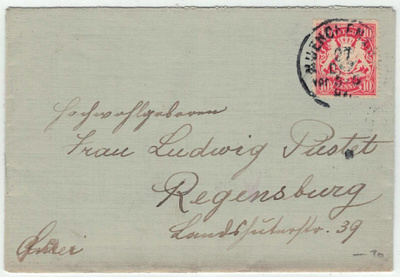 MUENCHEN
27
10 10
Hochwohlgeboren
Frau Ludwig Pustet
Regensburg
Landshuterstr. 39